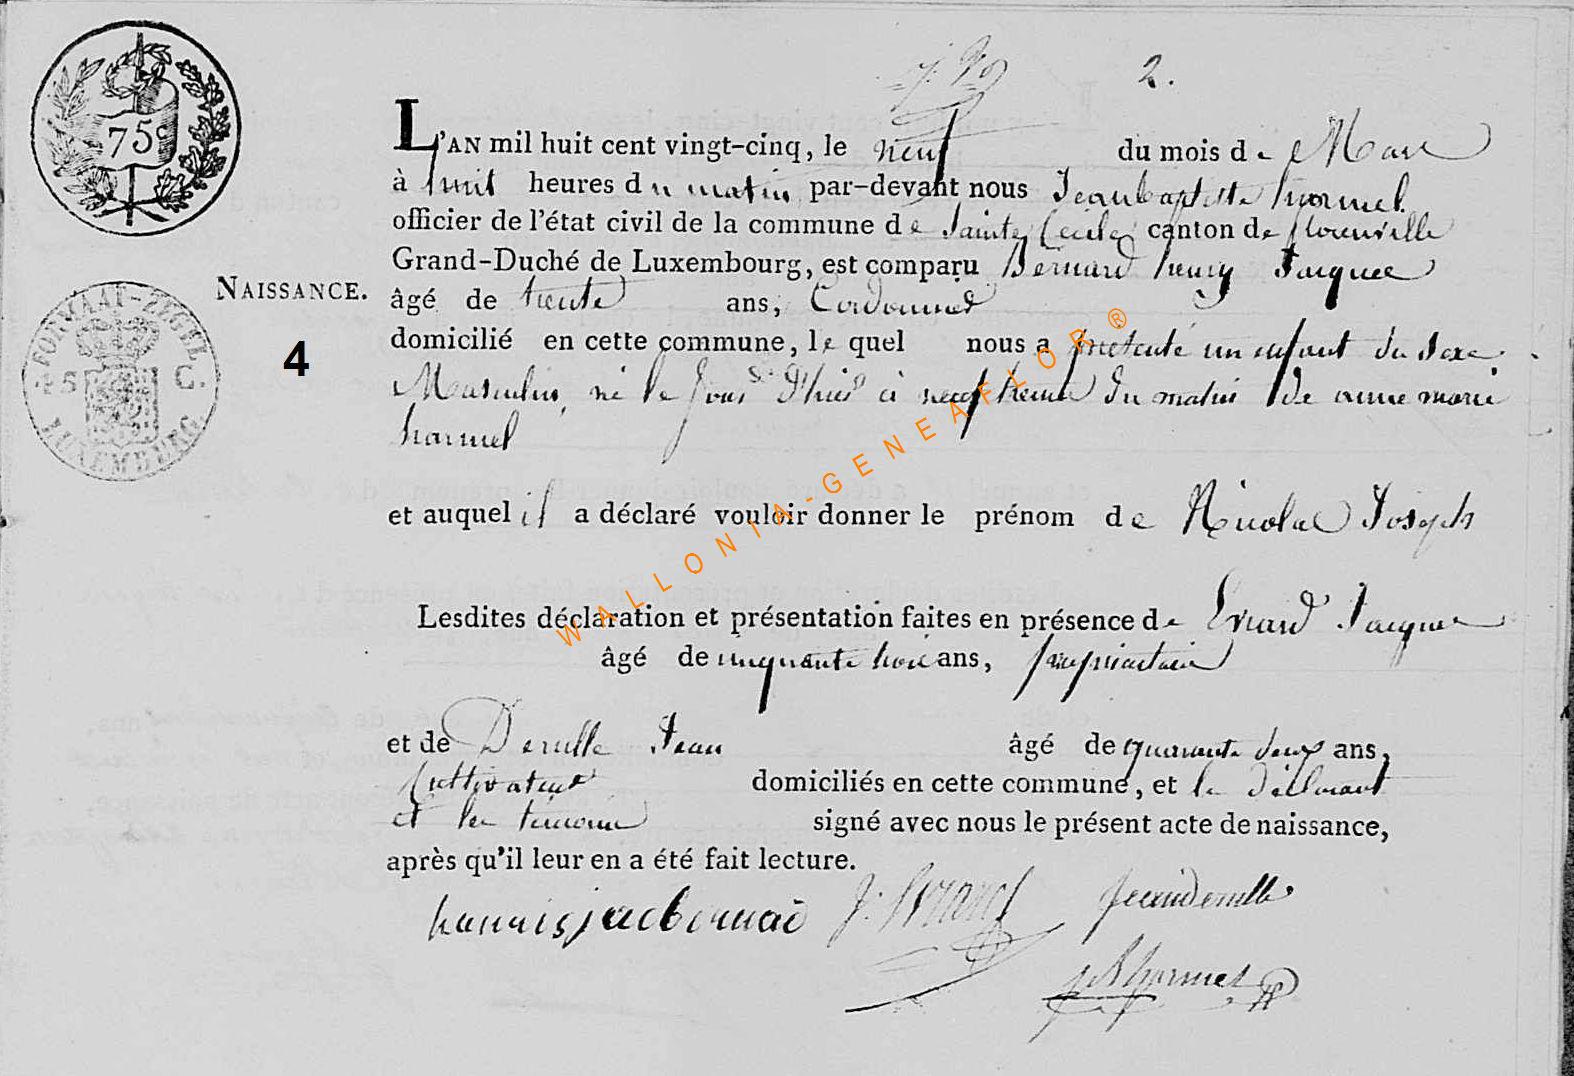 2.
75c
L'AN mil huit cent vingt-cinq, le neuf du mois de Mars
à huit heures du matin par-devant nous Jean baptiste hormel
officier de l'état civil de la commune de Sainte Cecile canton de florenville
Grand-Duché de Luxembourg, est comparu Bernard henry Jacques
NAISSANCE.
âgé de trente ans, Cordonnier
FORMAAT-ZEGEL
75 C.
LUXEMBURG.
4
domicilié en cette commune, le quel nous a présenté un enfant du sexe
Masculin, né le Jour d'huit à neuf heures du matin de anne marie
harmel
et auquel il a déclaré vouloir donner le prénom de Nicolas Joseph
Lesdites déclaration et présentation faites en présence de Evrard Jacques
âgé de cinquante trois ans, propriétaire
et de Derulle Jean âgé de quarante deux ans,
Cultivateur domiciliés en cette commune, et le déclarant
et les témoins signé avec nous le présent acte de naissance,
après qu'il leur en a été fait lecture.
J. Evrard jeanderulle
JB hormel
WALLONIA-GENEAFLOR ®